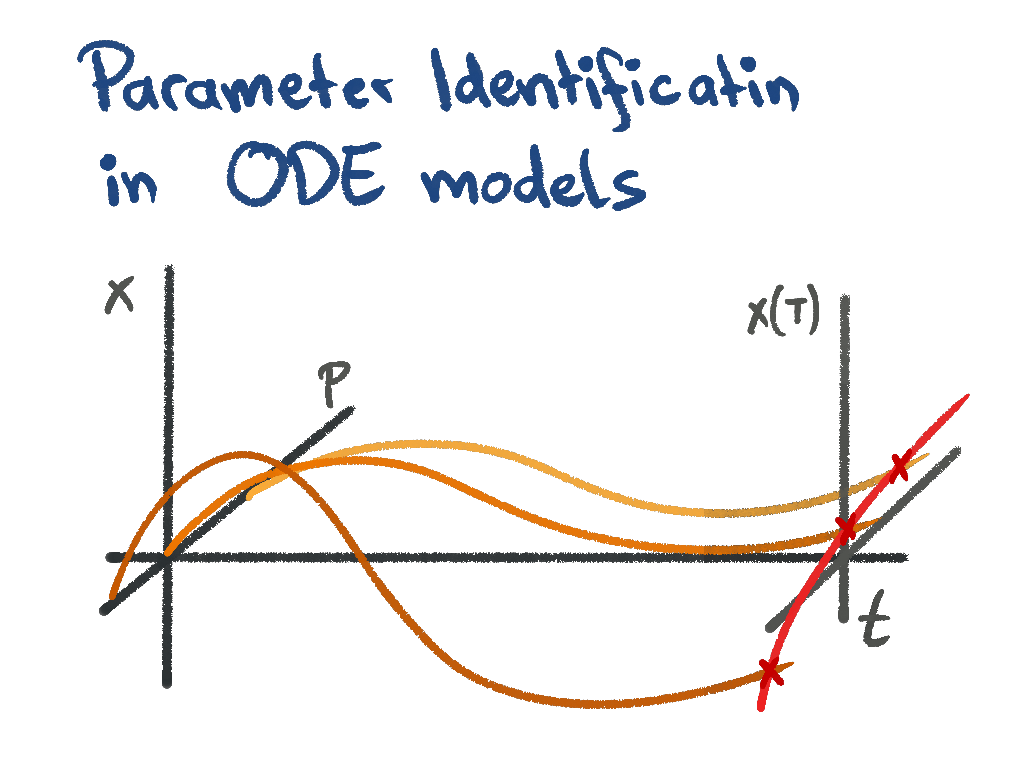 Parameter Identificatin
in ODE models
x
x(T)
P
t